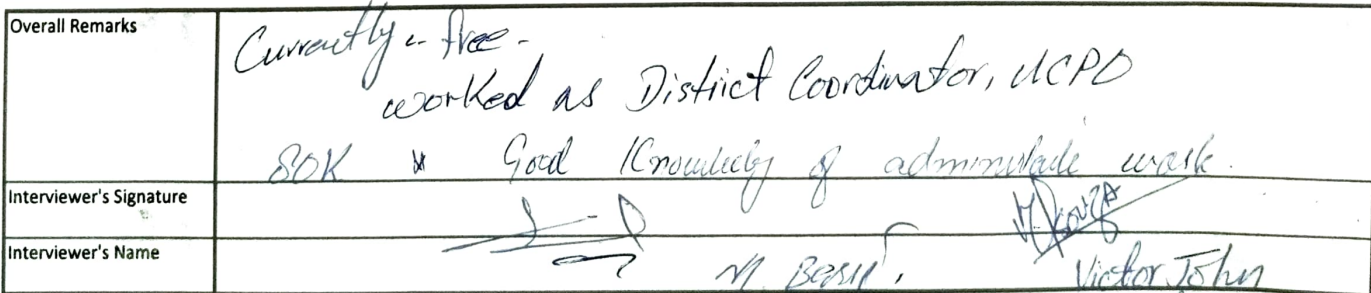 Overall Remarks
Currently - free -
worked as District Coordinator, UCPO
80K * Good Knowledg of administrate work.
Interviewer's Signature
Interviewer's Name
M. Victor John